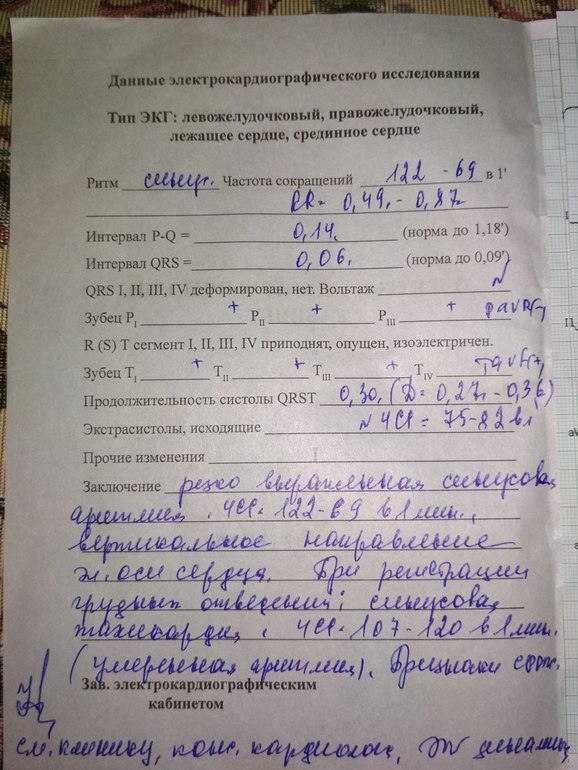 Данные электрокардиографического исследования
Тип ЭКГ: левожелудочковый, правожелудочковый,
лежащее сердце, срединное сердце
Ритм синус. Частота сокращений 122 - 69 в 1'
RR= 0,49 - 0,87
Интервал P-Q = 0,14 (норма до 1,18')
Интервал QRS = 0,06 (норма до 0,09')
QRS I, II, III, IV деформирован, нет. Вольтаж N
Зубец P I + P II + P III + PaVR(-)
R (S) T сегмент I, II, III, IV приподнят, опущен, изоэлектричен.
Зубец T I + T II + T III + T IV TaVR(-)
Продолжительность систолы QRST 0,30, (D= 0,27 - 0,36)
Экстрасистолы, исходящие N ЧСС = 75-82 в 1'
Прочие изменения
Заключение резко выраженная синусовая
аритмия, ЧСС 122-69 в 1 мин.,
вертикальное направление
эл. оси сердца. При регистрации
грудных отведений: синусовая
тахикардия, ЧСС 107-120 в 1 мин.
(умеренная аритмия). Признаки
Зав. электрокардиографическим
кабинетом
см. клинику, конс. кардиолога,